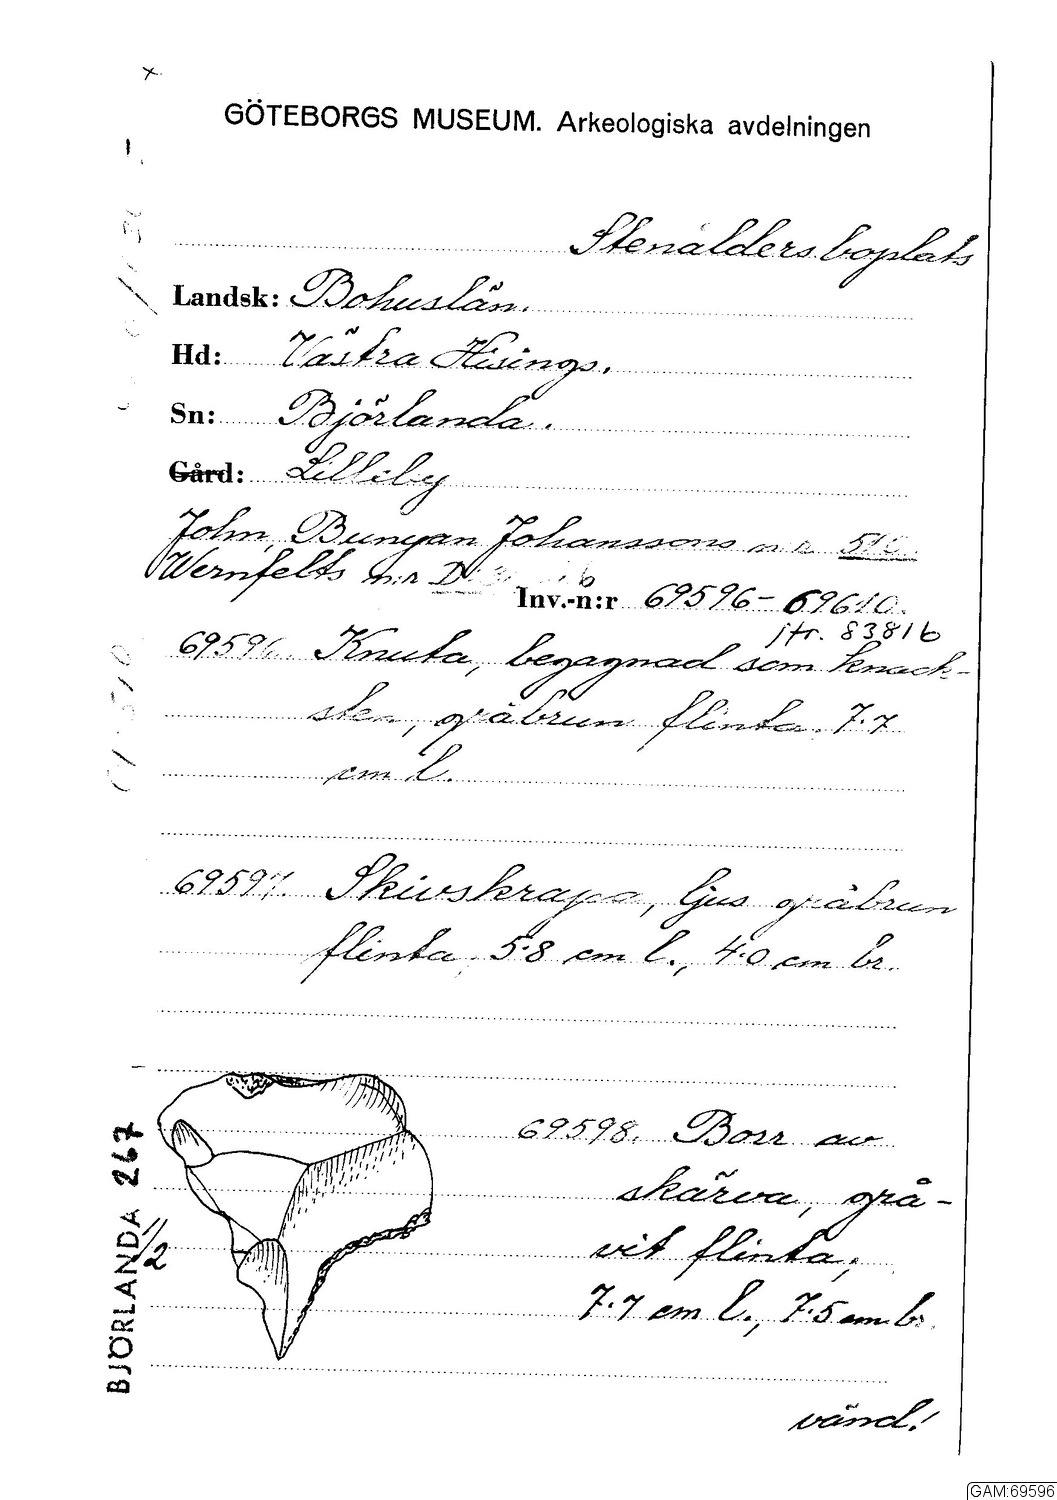 GÖTEBORGS MUSEUM. Arkeologiska avdelningen
Stenåldersboplats
Landsk: Bohuslän.
Hd: Västra Hisings.
Sn: Björlanda.
Gård: Lilleby
John Bunyan Johanssons n:r
Wernfelts n:r D
Inv.-n:r 69596-69610.
jfr. 83816
69596. Knuta, begagnad som knack-
sten, gråbrun flinta. 7.7
cm l.
69597. Skivskrapa, ljus gråbrun
flinta, 5.8 cm l., 4.0 cm br.
69598. Borr av
skärva, grå-
vit flinta,
7.7 cm l., 7.5 cm br.
1/2
BJÖRLANDA 267
vänd!
GAM:69596